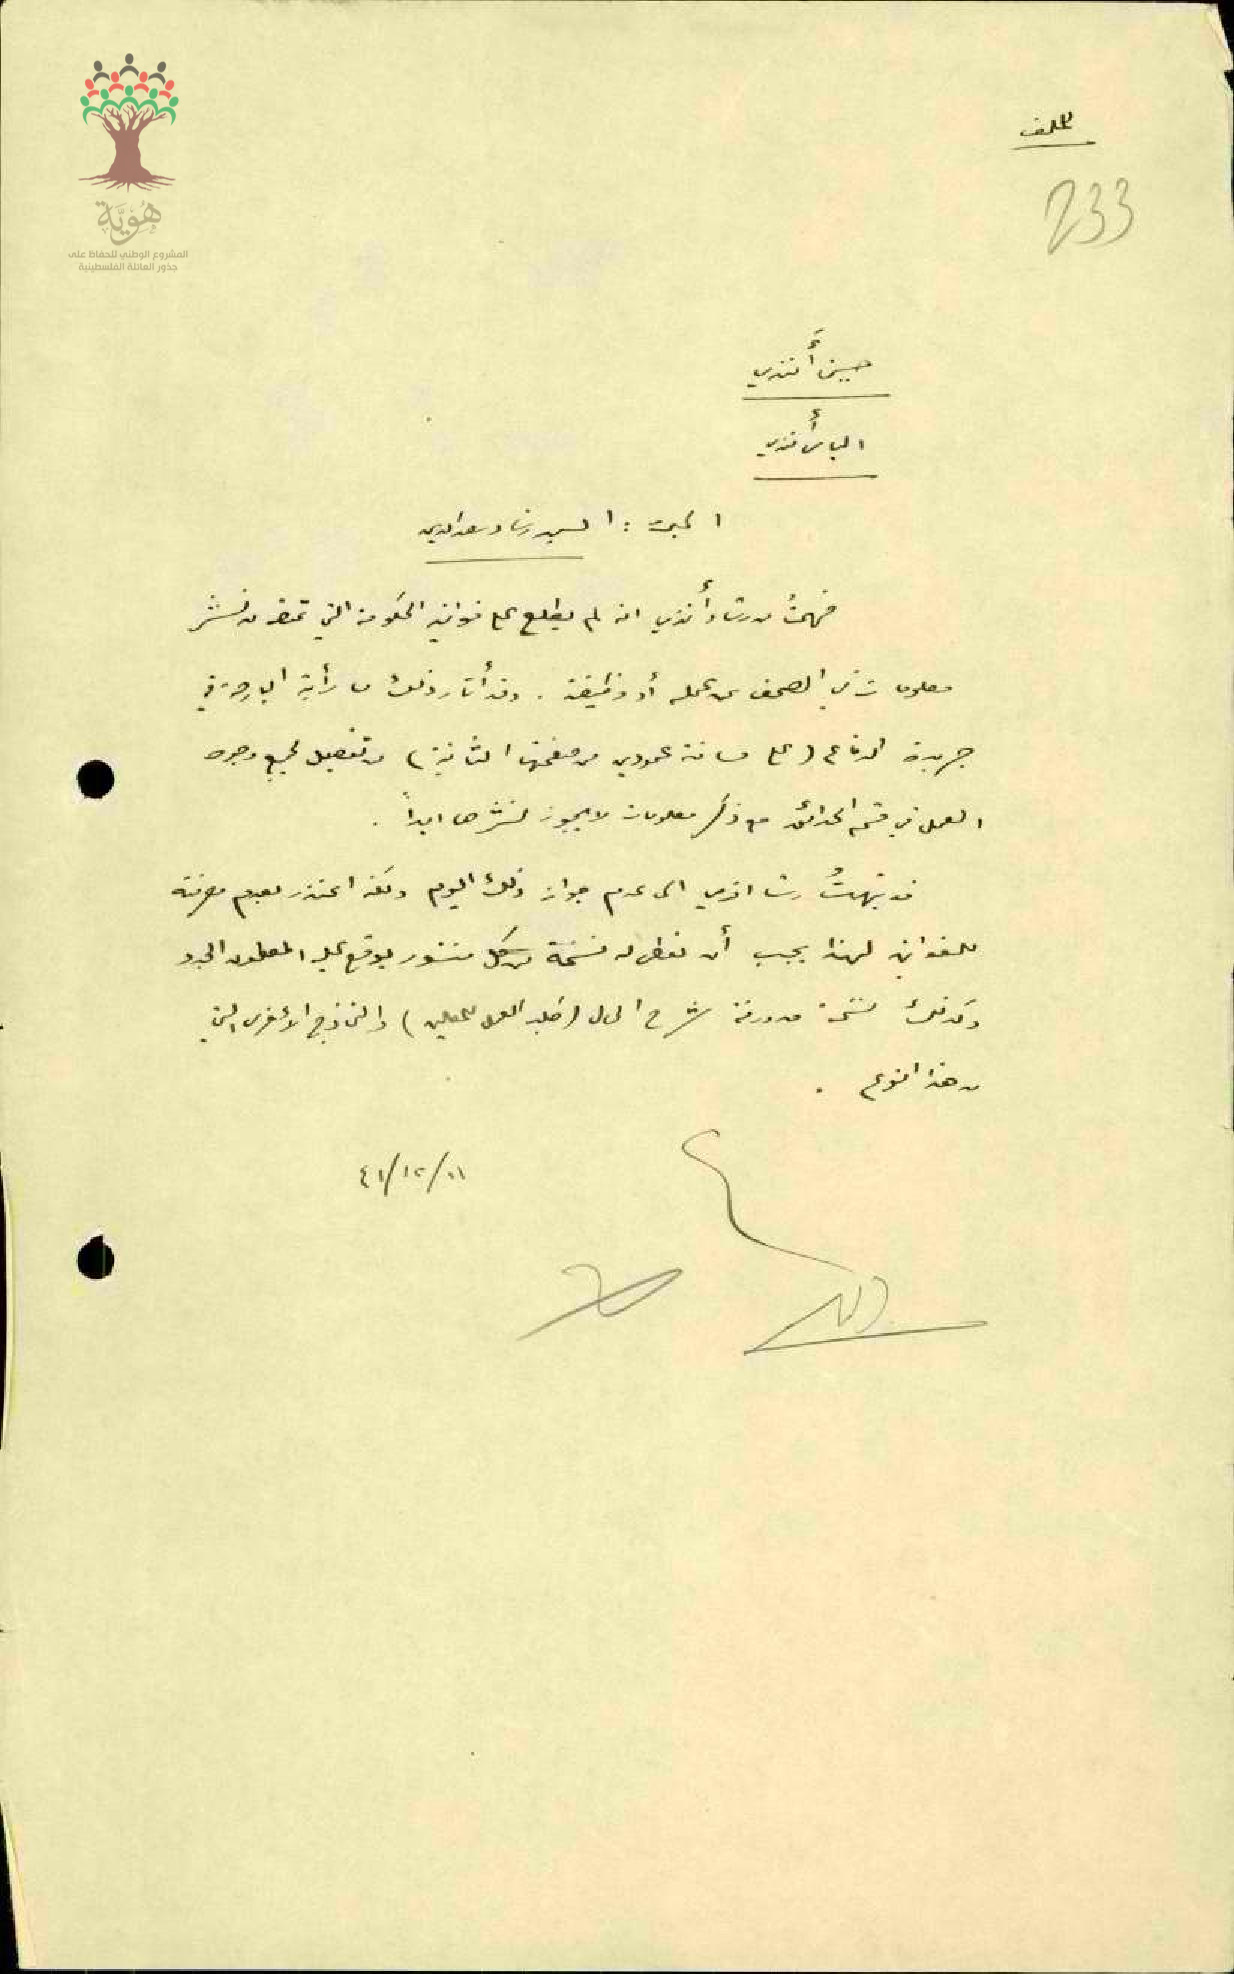 هُوِيَّة
المشروع الوطني للحفاظ على
جذور العائلة الفلسطينية
للملف
233
حسين أفندي
الياس أفندي
المبحث : السيد رشاد سعد الدين
فهمتُ من رشاد أفندي انه لم يطلع على قوانين الحكومة التي تمنع من نشر
معلومات في الصحف عن عمله أو وظيفته . وقد أثار ذلك ما رأيته البارحة في
جريدة الدفاع (على مسافة عمودين من صفحتها الثانية) من تفصيل لجميع وجوه
العمل في قسم الحدائق مع ذكر معلومات لا يجوز نشرها ابداً .
قد نبهتُ رشاد افندي الى عدم جواز ذلك اليوم ولكنه اعتذر بعدم معرفته
للقوانين لهذا يجب أن تعطى له نسخة من كل منشور يوقع عليه المعلمون الجدد
وكذلك نسخة من ورقة شرح الحال (طلب العمل للمعلمين) والنماذج الأخرى التي
من هذا النوع .
١١/١٢/٤١